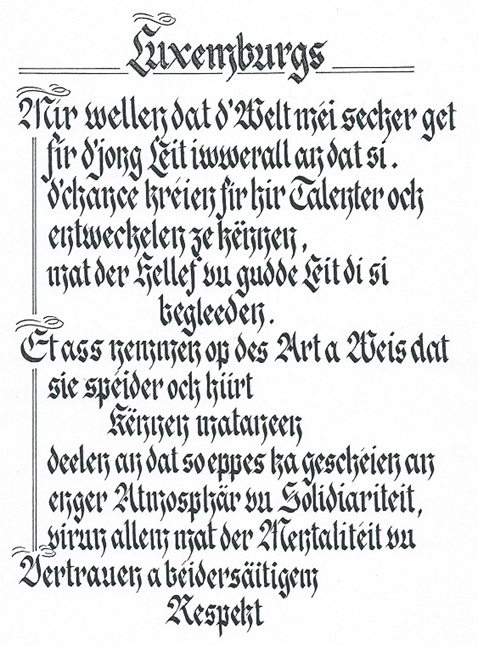 Luxemburgs
Mir wellen dat d'Welt méi secher get
fir d'jong Leit iwwerall an dat si.
d'chance kréien fir hir Talenter och
entweckelen ze kënnen,
mat der Hellef vu gudde Leit di si
begleeden.
Et ass nemmen op des Art a Weis dat
sie speider och hiirt
Kënnen mataneen
deelen an dat so eppes ka gescheien an
enger Atmosphär vu Solidiariteit,
virun allem mat der Mentalitéit vu
Vertrauen a beidersäitigem
Respekt